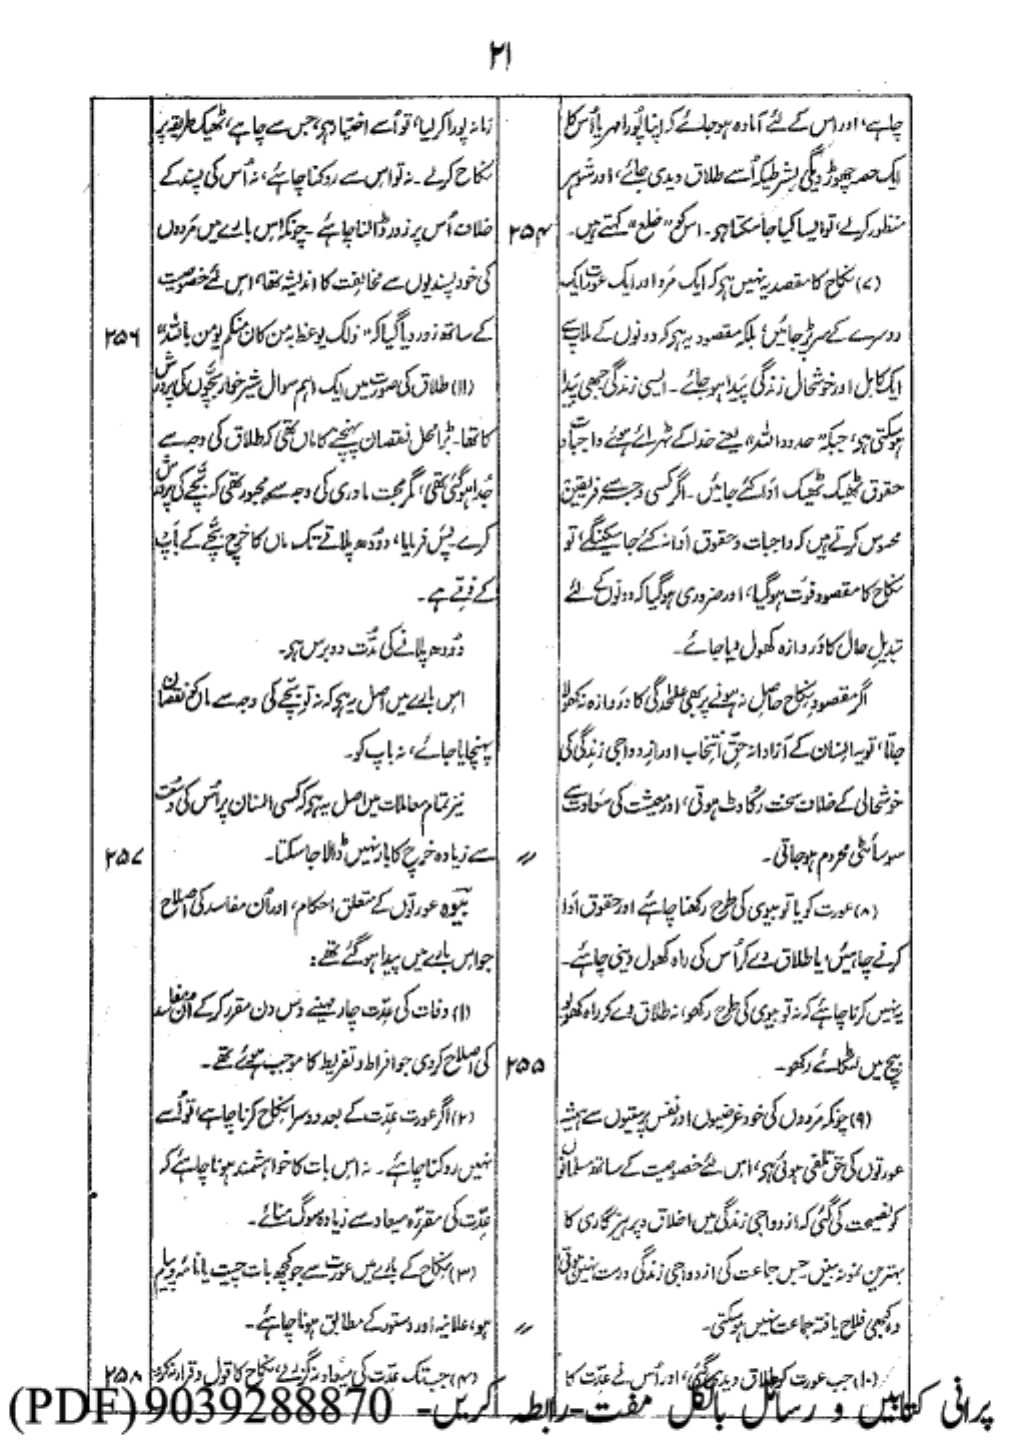 ۲۱
چاہے، اور اس کے لئے آمادہ ہو جائے کہ اپنا پورا مہر یا اُس کا
ایک حصہ چھوڑ دیگی بشرطیکہ اُسے طلاق دیدی جائے، اور شوہر
منظور کر لے، تو ایسا کیا جا سکتا ہو۔ اس کو "خلع" کہتے ہیں۔
۲۵۴
(۷) نکاح کا مقصد یہ نہیں ہو کہ ایک مرد اور ایک عورت ایک
دوسرے کے سر پڑ جائیں؛ بلکہ مقصود یہ ہو کہ دونوں کے ملاپ سے
ایک کامل اور خوشحال زندگی پیدا ہو جائے۔ ایسی زندگی جبھی پیدا
ہو سکتی ہو، جبکہ "حدود اللہ" یعنے خدا کے ٹھرائے ہوئے واجبات و
حقوق ٹھیک ٹھیک ادا کئے جائیں۔ اگر کسی وجہ سے فریقین
محسوس کرتے ہیں کہ واجبات و حقوق ادا نہ کئے جا سکینگے، تو
نکاح کا مقصود فوت ہو گیا، اور ضروری ہو گیا کہ دونوں کے لئے
تبدیل حال کا دروازہ کھول دیا جائے۔
اگر مقصودِ نکاح حاصل نہ ہونے پر بھی علحدگی کا دروازہ نہ کھولا
جاتا، تو یہ انسان کے آزادانہ حقِ انتخاب اور ازدواجی زندگی کی
خوشحالی کے خلاف سخت رکاوٹ ہوتی، اور معیشت کی سعادت سے
سوسائٹی محروم ہو جاتی۔
〃
(۸) عورت کو یا تو بیوی کی طرح رکھنا چاہئے اور حقوق ادا
کرنے چاہئیں، یا طلاق دے کر اُس کی راہ کھول دینی چاہئے۔
یہ نہیں کرنا چاہئے کہ نہ تو بیوی کی طرح رکھو، نہ طلاق دے کر راہ کھولو
بیچ میں لٹکائے رکھو۔
۲۵۵
(۹) چونکہ مردوں کی خود غرضیوں اور نفس پرستیوں سے ہمیشہ
عورتوں کی حق تلفی ہوئی ہو، اس لئے خصوصیت کے ساتھ مسلمانوں
کو نصیحت کی گئی کہ ازدواجی زندگی میں اخلاق و پرہیزگاری کا
بہترین نمونہ بنیں جس جماعت کی ازدواجی زندگی درست نہیں ہوتی
وہ کبھی فلاح یافتہ جماعت نہیں ہو سکتی۔
〃
(۱۰) جب عورت کو طلاق دیدی گئی، اور اُس نے عدّت کا
زمانہ پورا کر لیا، تو اُسے اختیار ہو، جس سے چاہے، ٹھیک طریقہ پر
نکاح کر لے۔ نہ تو اس سے روکنا چاہئے، نہ اُس کی پسند کے
خلاف اُس پر زور ڈالنا چاہئے۔ چونکہ اِس بارے میں مردوں
کی خود پسندیوں سے مخالفت کا اندیشہ تھا، اس لئے خصوصیت
کے ساتھ زور دیا گیا کہ "ذلک یوعظ بہ من کان منکم یومن باللہ"
۲۵۶
(۱۱) طلاق کی صورت میں ایک اہم سوال شیر خوار بچّوں کی پرورش
کا تھا۔ بڑا محل نقصان پہنچنے کا ماں تھی کہ طلاق کی وجہ سے
جُدا ہو گئی تھی، مگر محبت مادری کی وجہ سے مجبور تھی کہ بچّے کی پرورش
کرے۔ پس فرمایا، دودھ پلانے تک ماں کا خرچ بچّے کے باپ
کے ذمّے ہے۔
دودھ پلانے کی مدّت دو برس ہو۔
اس بارے میں اصل یہ ہو کہ نہ تو بچّے کی وجہ سے ماں کو نقصان
پہنچایا جائے، نہ باپ کو۔
نیز تمام معاملات میں اصل یہ ہو کہ کسی انسان پر اُس کی وُسعت
سے زیادہ خرچ کا بار نہیں ڈالا جا سکتا۔
۲۵۷
بیوہ عورتوں کے متعلق احکام، اور اُن مفاسد کی اصلاح
جو اس بارے میں پیدا ہو گئے تھے:
(۱) وفات کی عدّت چار مہینے دس دن مقرر کر کے اُن مفاسد
کی اصلاح کر دی جو افراط و تفریط کا موجب ہوئے تھے۔
(۲) اگر عورت عدّت کے بعد دوسرا نکاح کرنا چاہے، تو اُسے
نہیں روکنا چاہئے۔ نہ اس بات کا خواہشمند ہونا چاہئے کہ
عدّت کی مقررّہ میعاد سے زیادہ سوگ منائے۔
(۳) نکاح کے بارے میں عورت سے جو کچھ بات چیت یا نامہ و پیام
ہو، علانیہ اور دستور کے مطابق ہونا چاہئے۔
(۴) جب تک عدّت کی میعاد نہ گزر لے، نکاح کا قول و قرار نہ کرو۔
۲۵۸
پرانی کتابیں و رسائل بالکل مفت۔رابطہ کریں۔ 9039288870(PDF)